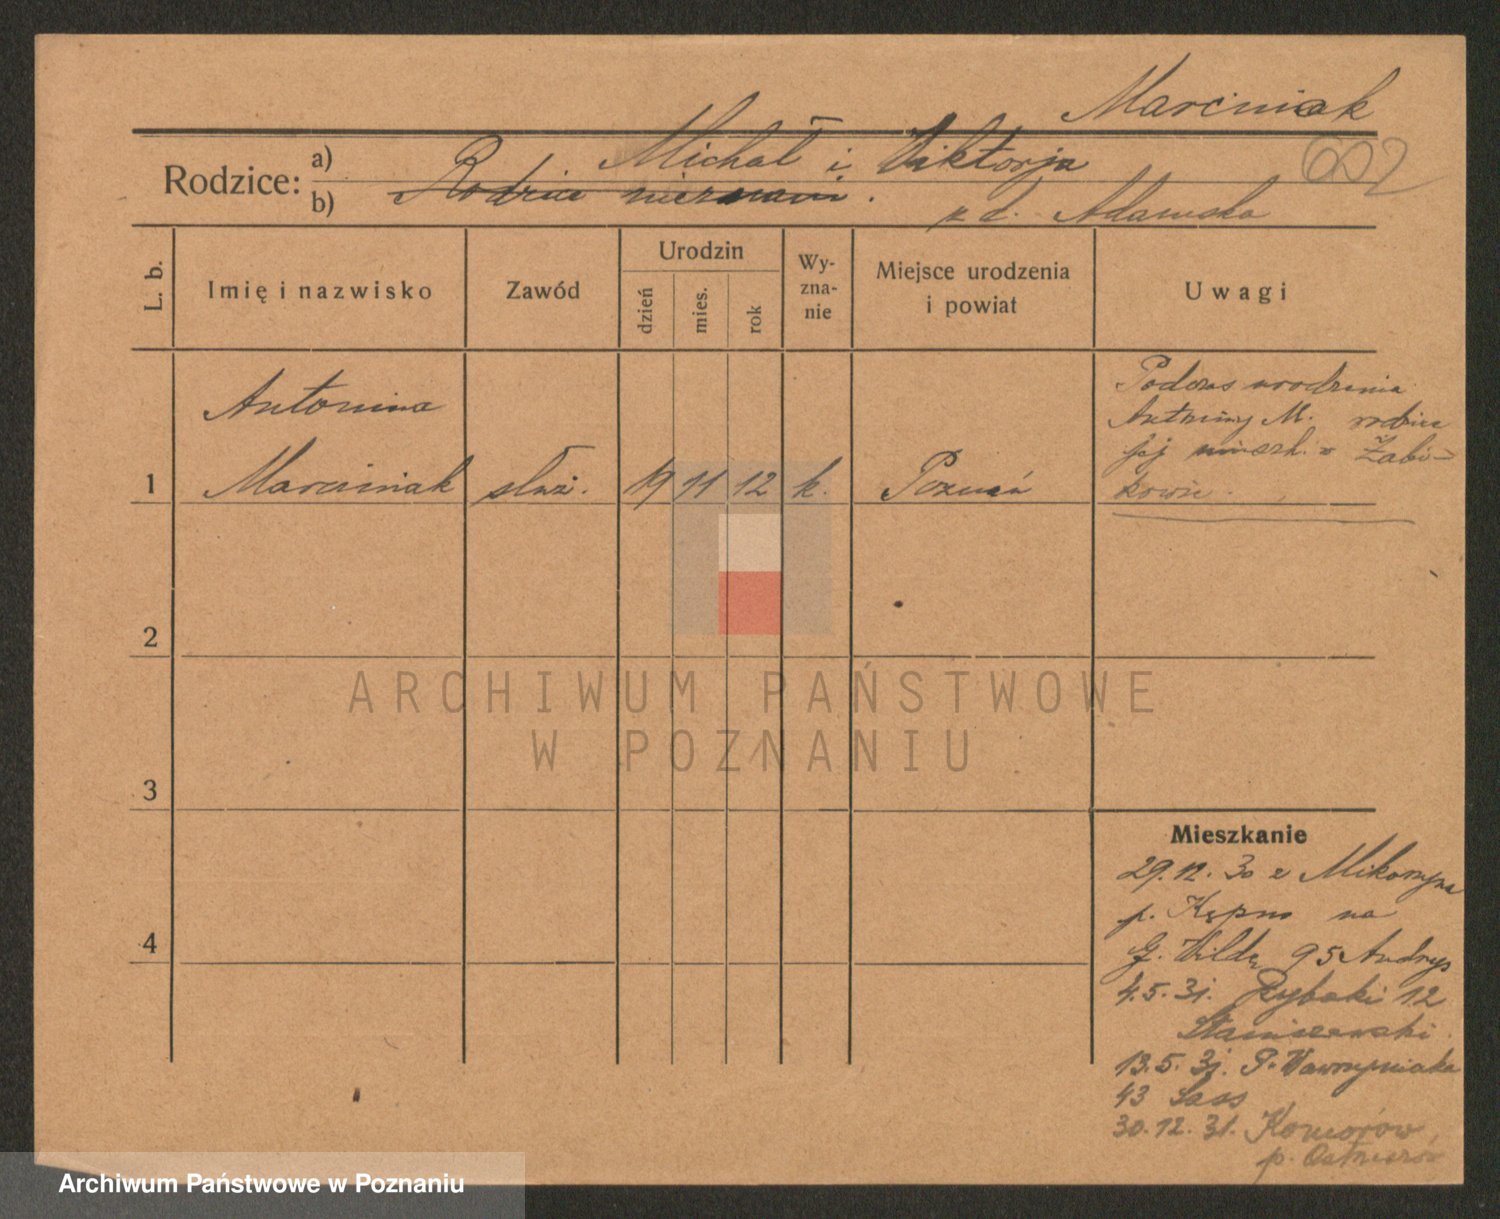 Marciniak
Rodzice: a) Michał i Wiktorja
602
b) Rodzice nieznani. z d. Adamska
L. b. Imię i nazwisko Zawód Urodzin dzień mies. rok Wyznanie Miejsce urodzenia i powiat Uwagi
Antonina
1 Marciniak służ. 19 11 12 k. Poznań
Podczas urodzenia
Antoniny M. rodzice
jej mieszk. w Żabi-
kowie.
2
3
4
Mieszkanie
29.12.30 z Mikorzyna
p. Kępno na
G. Wildę 95 Andrys
4.5.31. Rybaki 12
Staniszewski
13.5.31. P. Wawrzyniaka
43 Sass
30.12.31. Komorów,
p.
ARCHIWUM PAŃSTWOWE
W POZNANIU
Archiwum Państwowe w Poznaniu